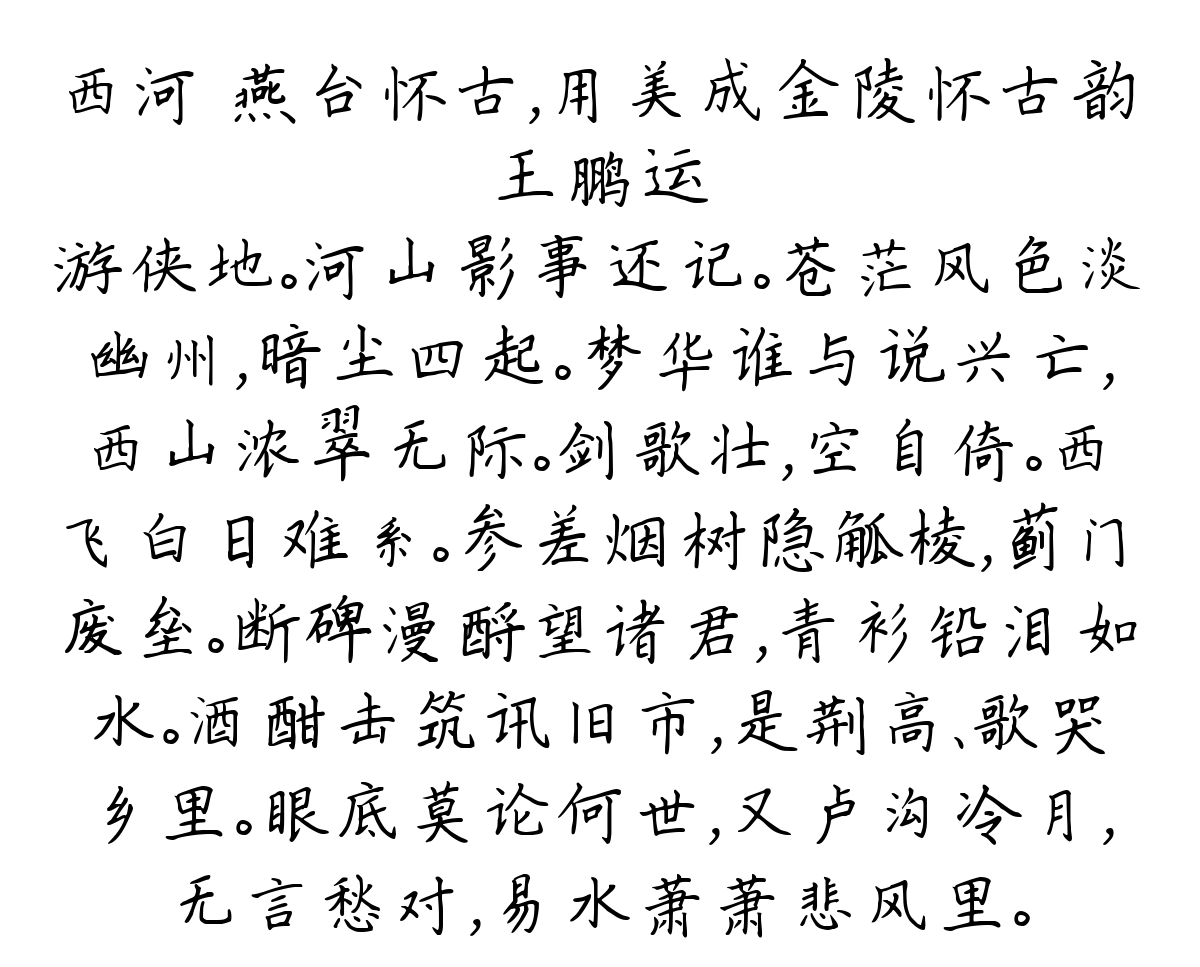 西河 燕台怀古,用美成金陵怀古韵
王鹏运
游侠地。河山影事还记。苍茫风色淡
幽州,暗尘四起。梦华谁与说兴亡,
西山浓翠无际。剑歌壮,空自倚。西
飞白日难系。参差烟树隐觚棱,蓟门
废垒。断碑漫酹望诸君,青衫铅泪如
水。酒酣击筑讯旧市,是荆高、歌哭
乡里。眼底莫论何世,又卢沟冷月,
无言愁对,易水萧萧悲风里。